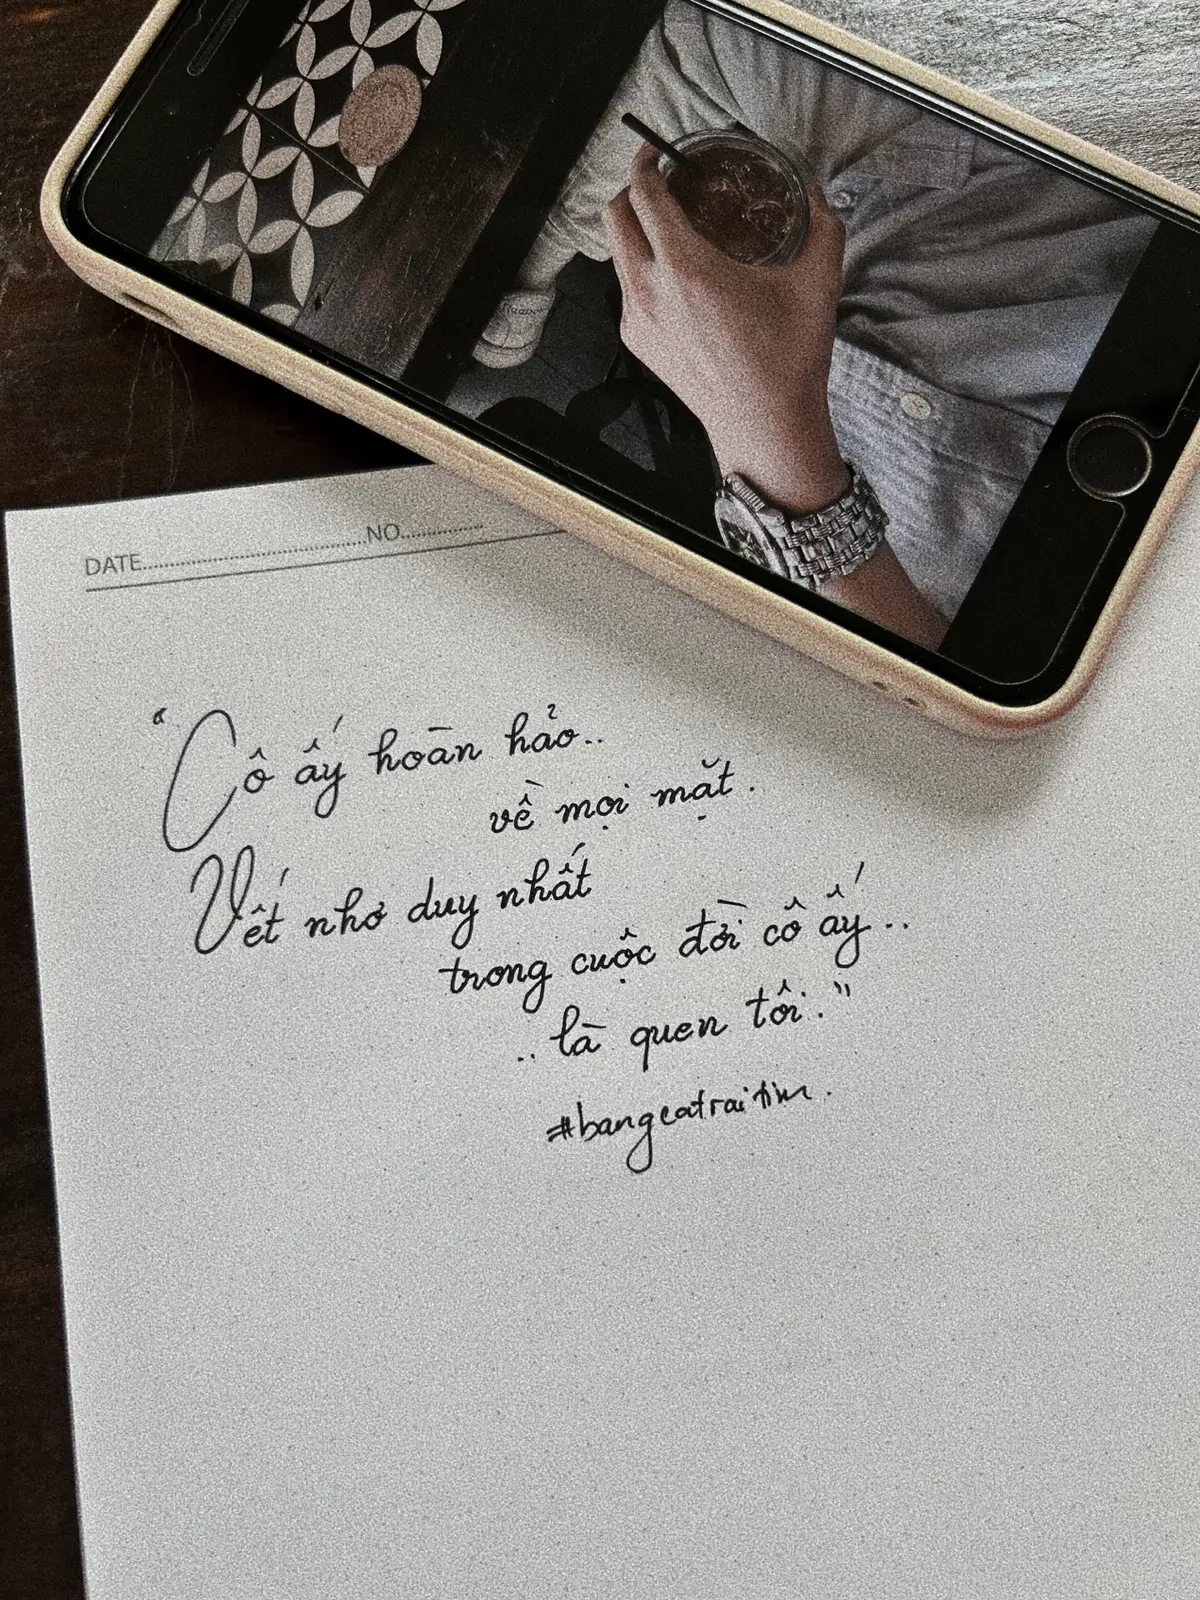 DATE..............................NO..............
“Cô ấy hoàn hảo..
về mọi mặt.
Vết nhơ duy nhất
trong cuộc đời cô ấy..
..là quen tôi.”
#bangcatraitim.